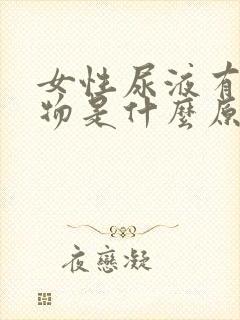 女性尿液有
物是什麼原
夜戀凝